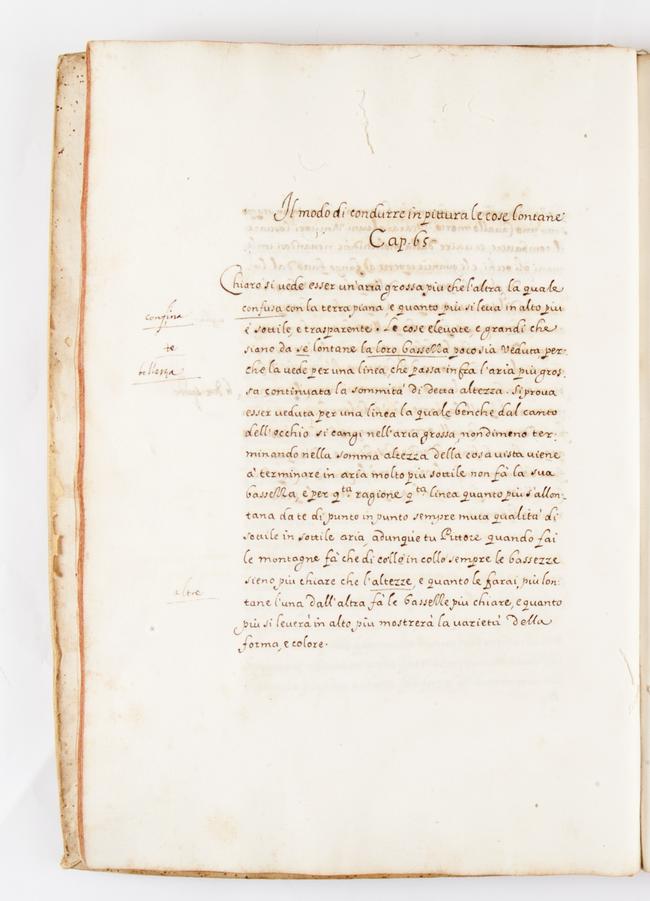 Il modo di condurre in pittura le cose lontane
Cap. 65.
Chiaro si vede esser un'aria grossa più che l'altra, la quale
confusa con la terra piana, e quanto più si leva in alto più
è sottile, e trasparente. Le cose elevate, e grandi che
siano da sè lontane la loro bassezza poco sia veduta per-
che la vede per una linea, che passa in fra l'aria più gros-
sa continuata la sommità di detta altezza. Si prova
esser veduta per una linea la quale benche dal canto
dell'occhio si cangi nell'aria grossa, nondimeno ter-
minando nella somma altezza della cosa vista viene
à terminare in aria molto più sottile non fà la sua
bassezza, e per q.ta ragione q.ta linea quanto più s'allon-
tana da te di punto in punto sempre muta qualità di
sottile in sottile aria, adunque tu Pittore quando fai
le montagne fà che di collo in collo sempre le bassezze
sieno più chiare che l'altezze, e quanto le farai più lon-
tane l'una dall'altra fà le bassezze più chiare, e quanto
più si leverà in alto, più mostrerà la varietà della
forma, e colore.
confina
te
altre